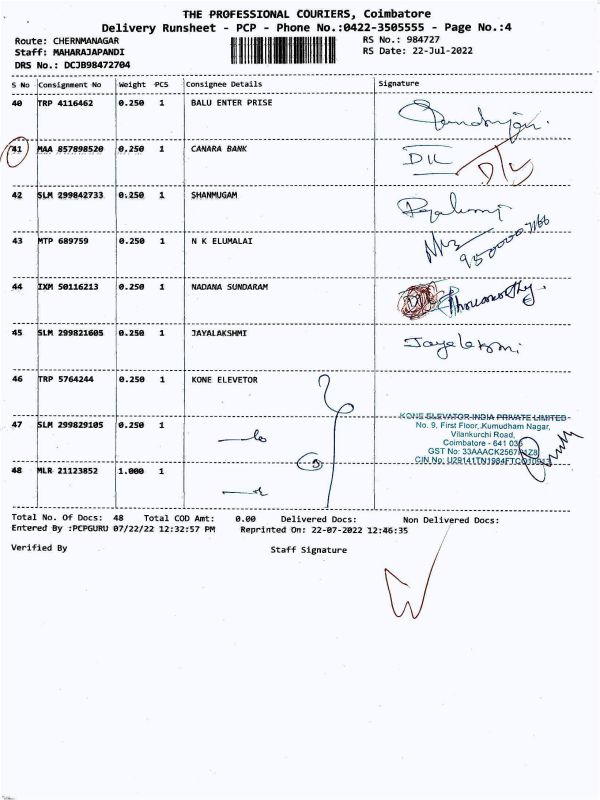 THE PROFESSIONAL COURIERS, Coimbatore
Delivery Runsheet - PCP - Phone No.:0422-3505555 - Page No.:4
Route: CHERNMANAGAR RS No.: 984727
Staff: MAHARAJAPANDI RS Date: 22-Jul-2022
DRS No.: DCJB98472704
S No Consignment No Weight PCS Consignee Details Signature
40 TRP 4116462 0.250 1 BALU ENTER PRISE
41 MAA 857898520 0.250 1 CANARA BANK
42 SLM 299842733 0.250 1 SHANMUGAM
43 MTP 689759 0.250 1 N K ELUMALAI
44 IXM 50116213 0.250 1 NADANA SUNDARAM
45 SLM 299821605 0.250 1 JAYALAKSHMI Jayalaksmi
46 TRP 5764244 0.250 1 KONE ELEVETOR
KONE ELEVATOR INDIA PRIVATE LIMITED
47 SLM 299829105 0.250 1 No. 9, First Floor, Kumudham Nagar,
Vilankurichi Road,
Coimbatore - 641 035
GST No: 33AAACK2567
48 MLR 21123852 1.000 1 CIN No: U29141TN1984FTC
Total No. Of Docs: 48 Total COD Amt: 0.00 Delivered Docs: Non Delivered Docs:
Entered By :PCPGURU 07/22/22 12:32:57 PM Reprinted On: 22-07-2022 12:46:35
Verified By Staff Signature